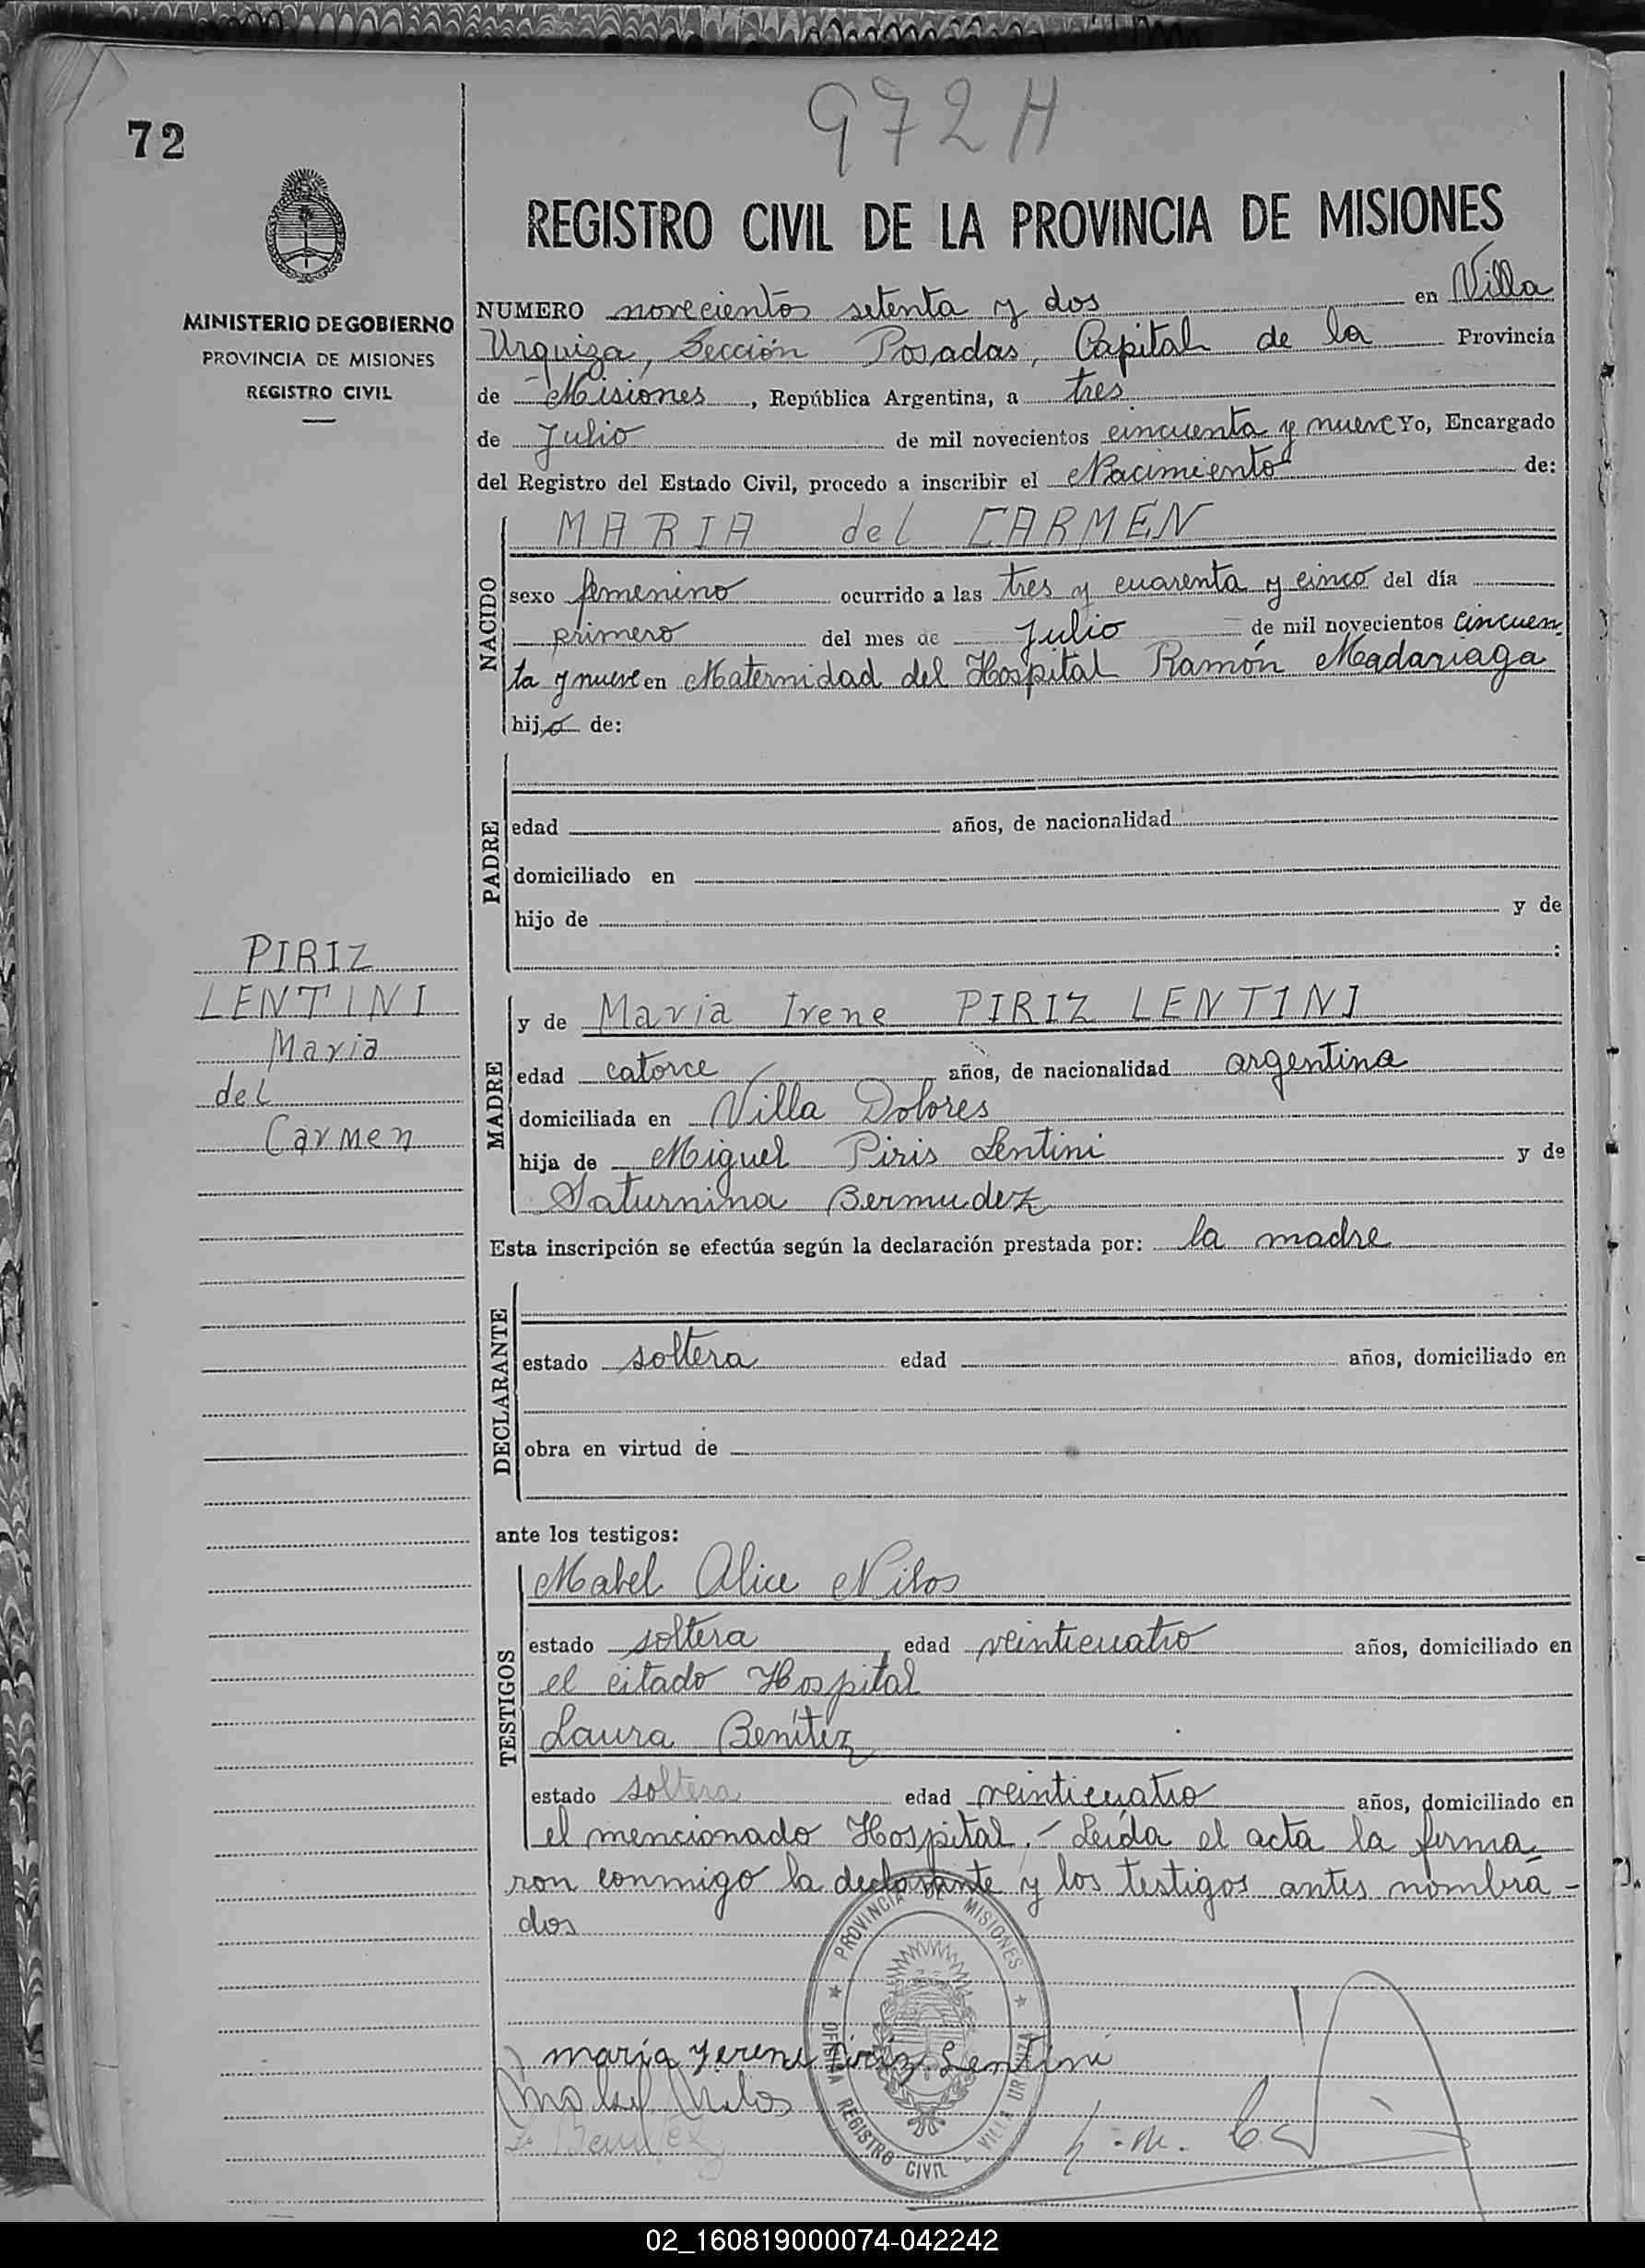 972 H
72
REGISTRO CIVIL DE LA PROVINCIA DE MISIONES
MINISTERIO DE GOBIERNO
PROVINCIA DE MISIONES
REGISTRO CIVIL
NUMERO novecientos setenta y dos en Villa
Urquiza, Sección Posadas, Capital de la Provincia
de Misiones, República Argentina, a tres
de Julio de mil novecientos cincuenta y nueve Yo, Encargado
del Registro del Estado Civil, procedo a inscribir el Nacimiento de:
NACIDO
MARIA del CARMEN
sexo femenino ocurrido a las tres y cuarenta y cinco del día
primero del mes de Julio de mil novecientos cincuen
ta y nueve en Maternidad del Hospital Ramón Madariaga
hija de:
PADRE
edad años, de nacionalidad
domiciliado en
hijo de y de
:
PIRIZ
LENTINI
Maria
del
Carmen
MADRE
y de Maria Irene PIRIZ LENTINI
edad catorce años, de nacionalidad argentina
domiciliada en Villa Dolores
hija de Miguel Piris Lentini y de
Saturnina Bermudez
Esta inscripción se efectúa según la declaración prestada por: la madre
DECLARANTE
estado soltera edad años, domiciliado en
obra en virtud de
ante los testigos:
TESTIGOS
Mabel Alice Nilos
estado soltera edad veinticuatro años, domiciliado en
el citado Hospital
Laura Benítez
estado soltera edad veinticuatro años, domiciliado en
el mencionado Hospital.- Leída el acta la firma
ron conmigo la declarante y los testigos antes nombra-
dos
PROVINCIA DE MISIONES
OFICINA REGISTRO CIVIL - VILLA URQUIZA
maria yrene Piriz Lentini
Mabel Nilos
L. Benitez
02_160819000074-042242